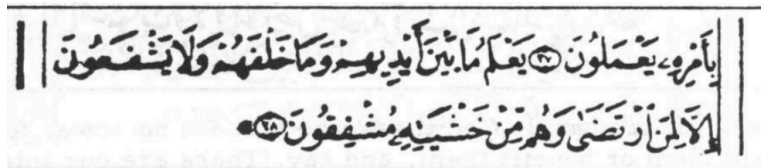 بِأَمْرِهِۦ يَعْمَلُونَ ۝٢٧ يَعْلَمُ مَا بَيْنَ أَيْدِيهِمْ وَمَا خَلْفَهُمْ وَلَا يَشْفَعُونَ
إِلَّا لِمَنِ ٱرْتَضَىٰ وَهُم مِّنْ خَشْيَتِهِۦ مُشْفِقُونَ ۝٢٨